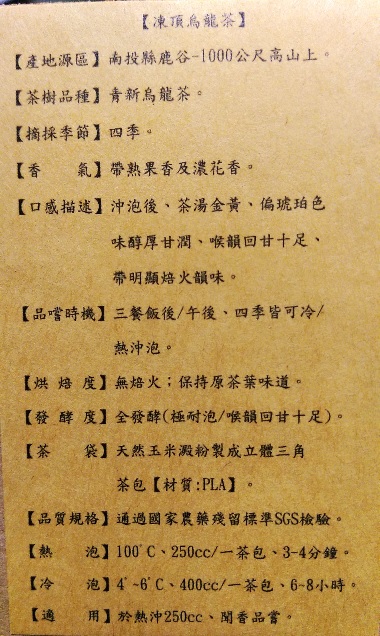 【凍頂烏龍茶】
【產地源區】南投縣鹿谷-1000公尺高山上。
【茶樹品種】青新烏龍茶。
【摘採季節】四季。
【香　　氣】帶熟果香及濃花香。
【口感描述】沖泡後、茶湯金黃、偏琥珀色
味醇厚甘潤、喉韻回甘十足、
帶明顯焙火韻味。
【品嚐時機】三餐飯後/午後、四季皆可冷/
熱沖泡。
【烘 焙 度】無焙火；保持原茶葉味道。
【發 酵 度】全發酵(極耐泡/喉韻回甘十足)。
【茶　　袋】天然玉米澱粉製成立體三角
茶包【材質:PLA】。
【品質規格】通過國家農藥殘留標準SGS檢驗。
【熱　　泡】100˚C、250cc/一茶包、3-4分鐘。
【冷　　泡】4˚~6˚C、400cc/一茶包、6-8小時。
【適　　用】於熱沖250cc、聞香品嘗。